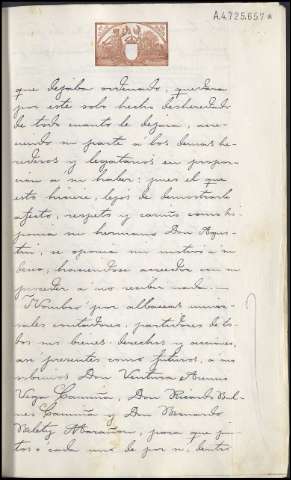 A.4.725.657*
que dejaba ordenado, quedara
por este solo hecho desheredado
de todo cuanto le dejara, acre-
ciendo su parte a los demas he-
rederos y legatarios en propor-
cion a su haber; pues el que
esto hiciere, lejos de demostrarle
afecto, respeto y cariño como
su hermano Don Agus-
tin, se oponia sin motivo a su
deseo, haciendose acreedor con su
proceder a no recibir nada.
"Nombro por albaceas univer-
sales contadores, partidores de to-
dos sus bienes derechos y acciones,
asi presentes como futuros, a sus
sobrinos Don Ventura
Vega Camiña, Don Ricardo
Camiña y Don Bernardo
para que jun-
tos o cada uno de por si, dentro